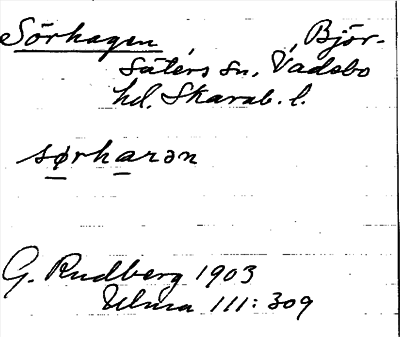 Sörhagen Björ-
säters sn, Vadsbo
hd. Skarab. l.
sørharən
G. Rudberg 1903
Ulma 111:309